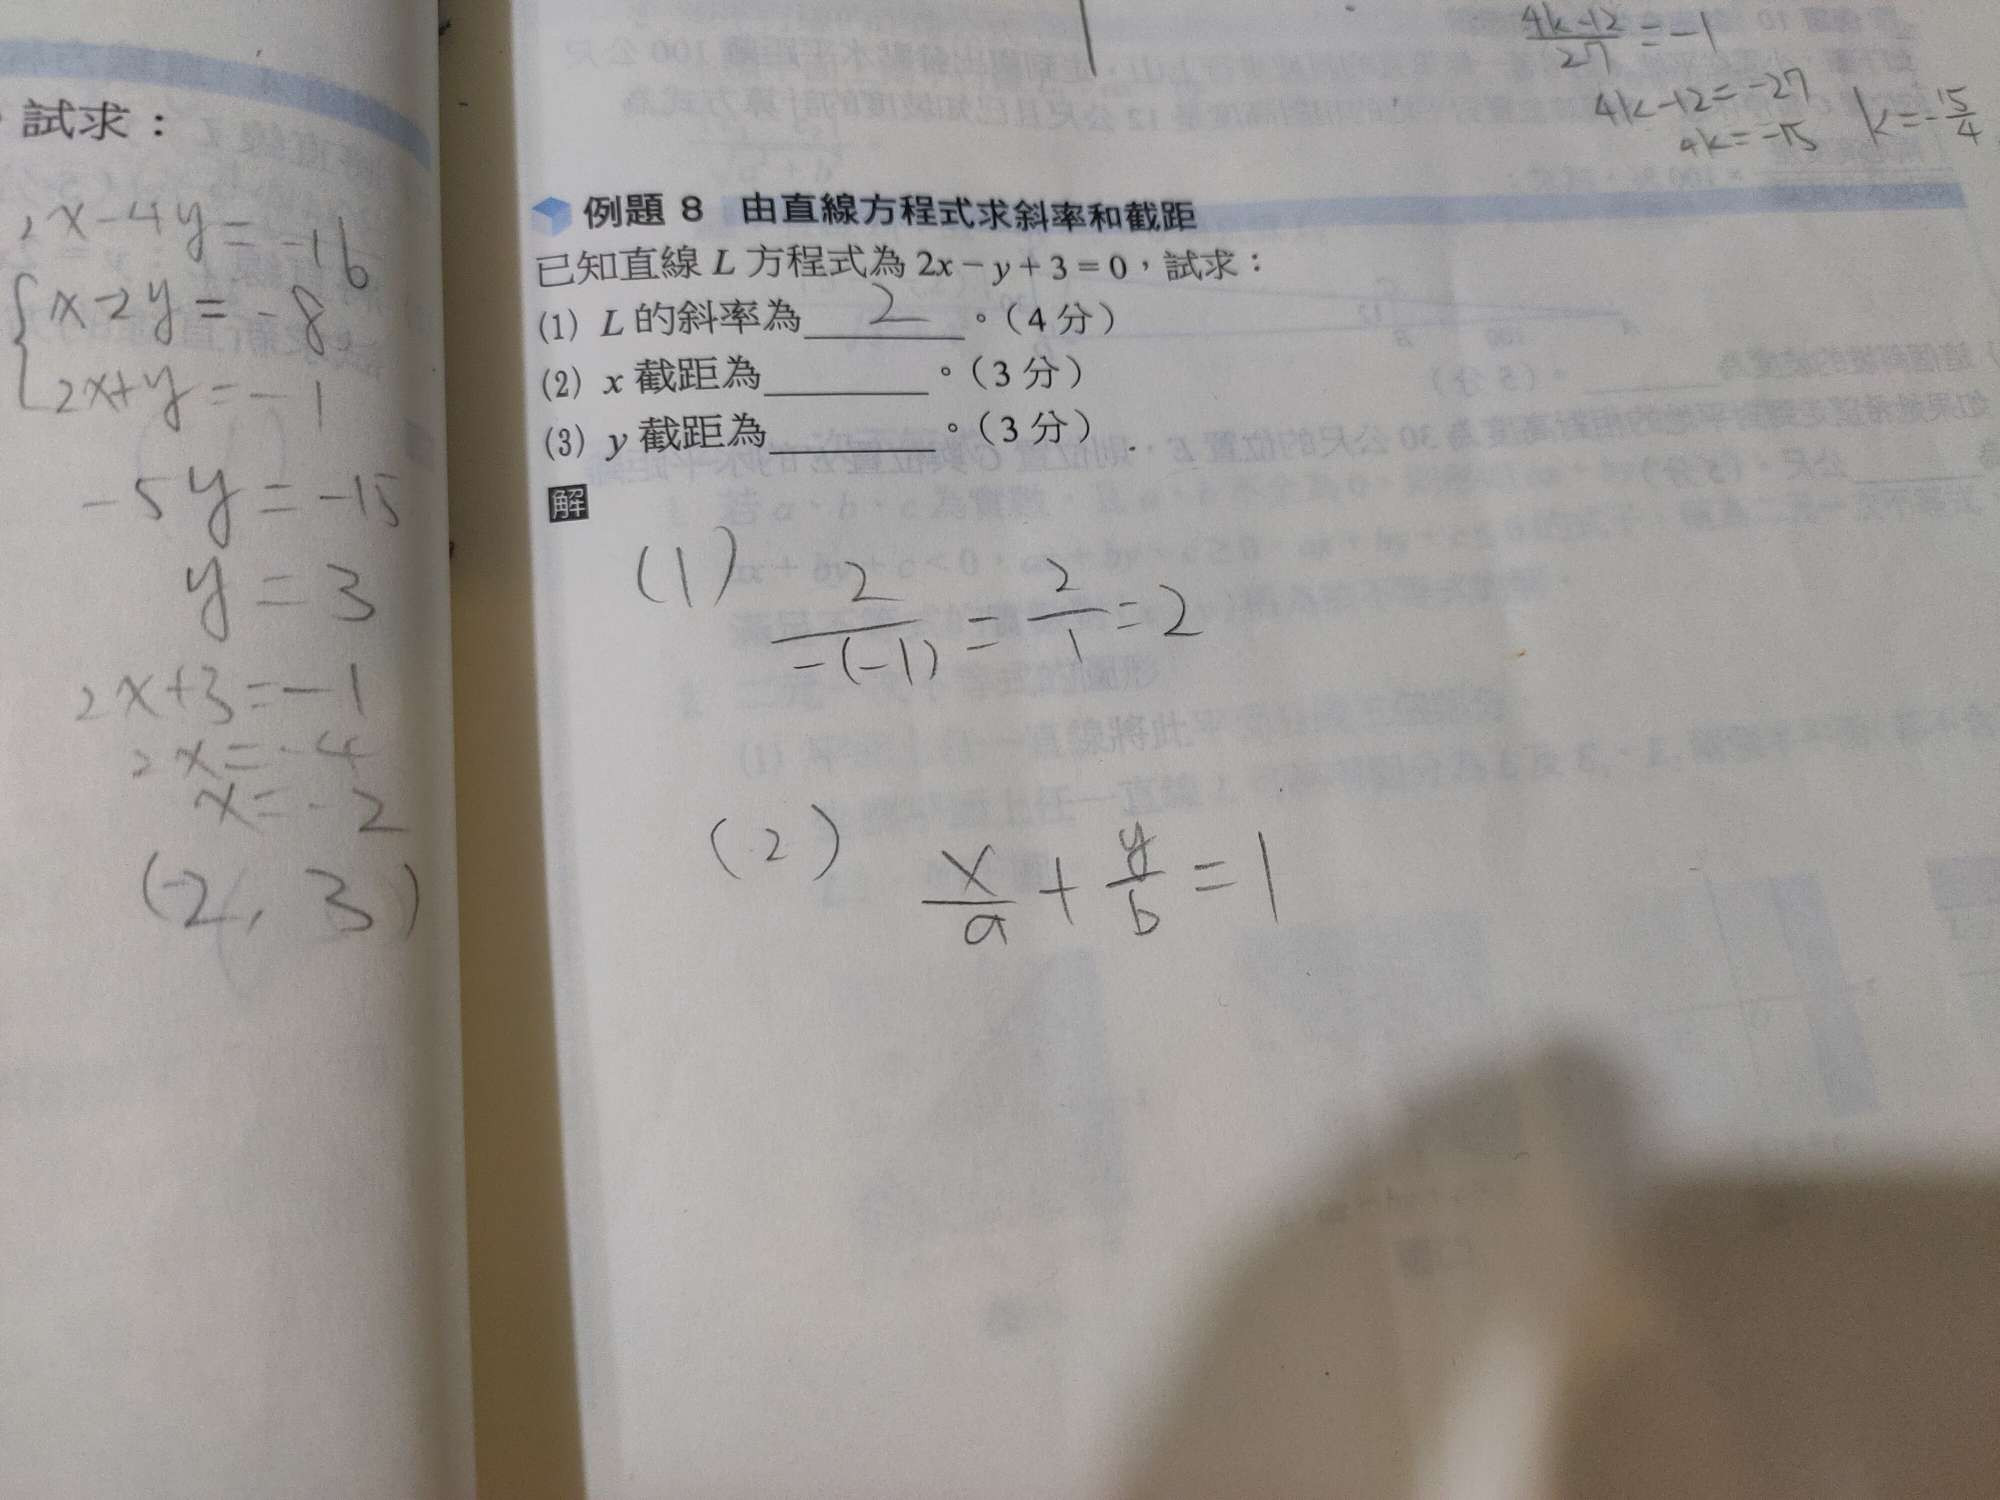 試求：
2x-4y=-16
x-2y=-8
2x+y=-1
-5y=-15
y=3
2x+3=-1
2x=-4
x=-2
(-2, 3)
4k-12/27=-1
4k-12=-27
4k=-15 k=-15/4
例題 8 由直線方程式求斜率和截距
已知直線 L 方程式為 2x－y＋3＝0，試求：
(1) L 的斜率為 2 。（4 分）
(2) x 截距為______。（3 分）
(3) y 截距為______。（3 分）
解
(1) 2/-(-1)=2/1=2
(2) x/a+y/b=1